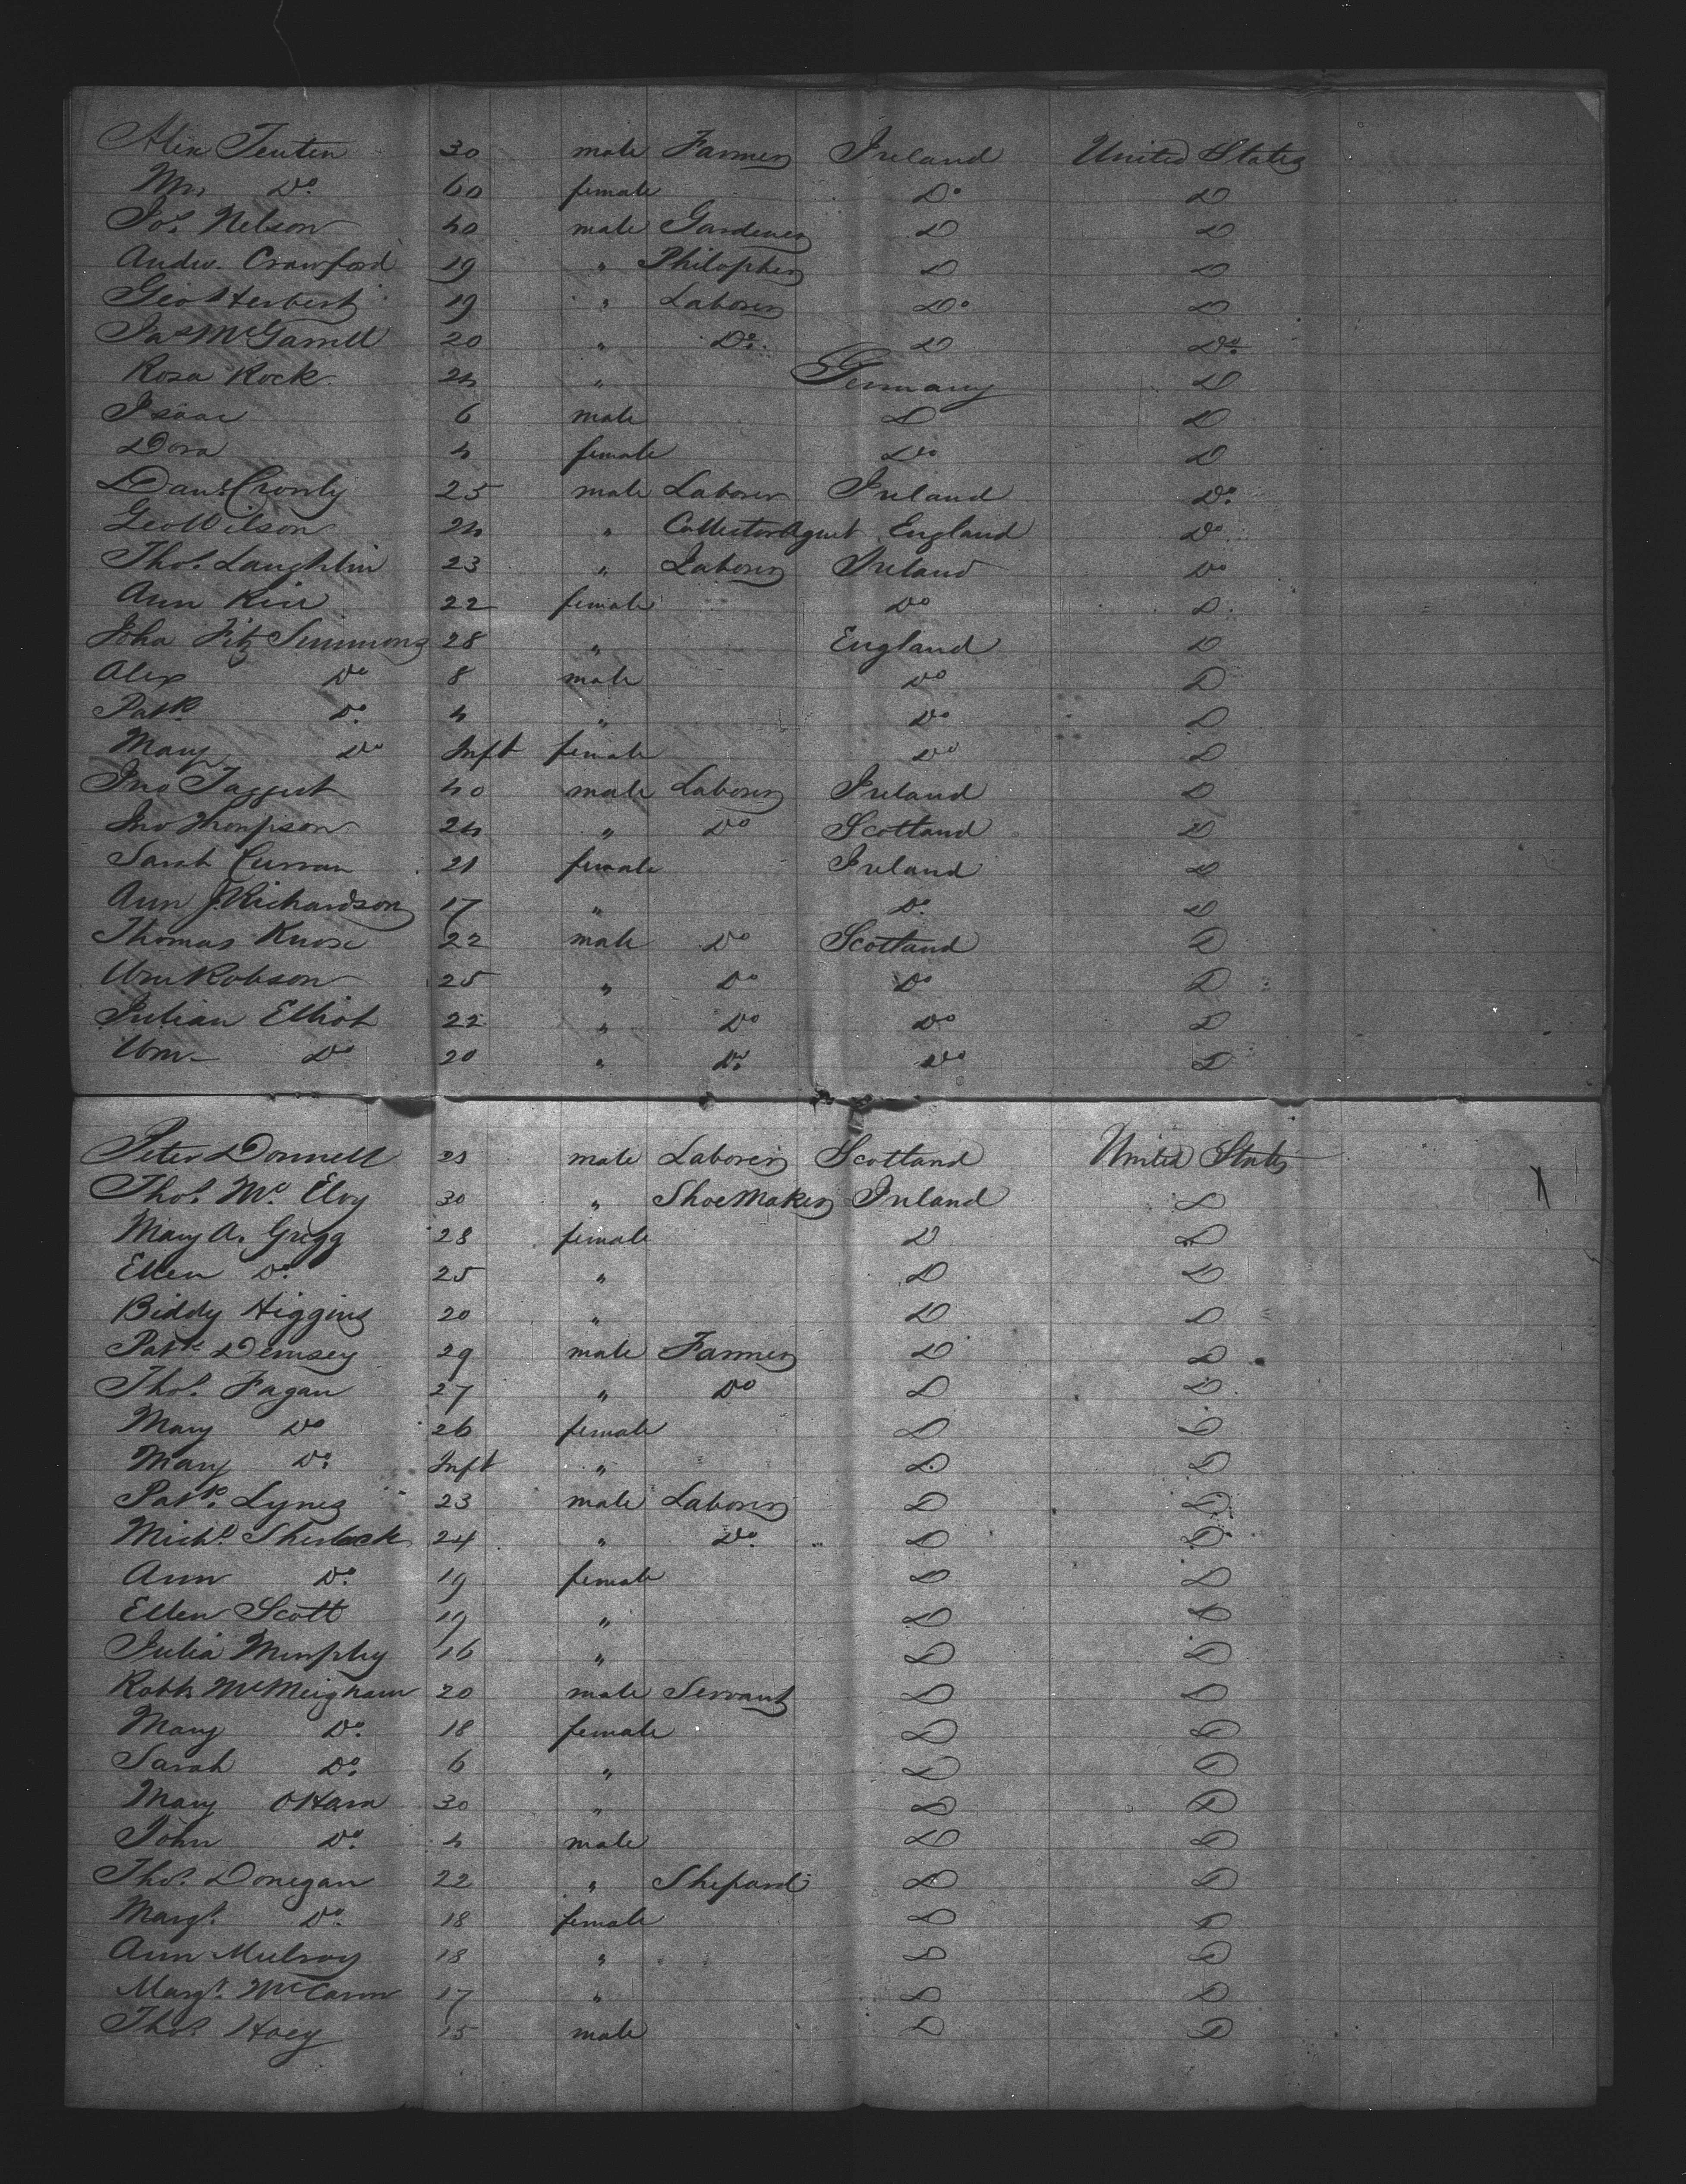 Alex Tenten 30 male Farmer Ireland United States
Mrs Do. 60 female Do D
Jos. Nelson 40 male Gardener D D
Andw. Crawford 19 " Philopher D D
Geo Herbert 19 " Laborer Do D
Jas McGarrell 20 " Do. D Do.
Rosa Rock 24 " Germany D
Isaac 6 male D D
Dora 4 female Do D
Danl. Cronly 25 male Laborer Ireland Do.
Geo Wilson 24 " Collector Agent England Do
Thos. Laughlin 23 " Laborer Ireland Do
Ann 22 female Do D
Joha Fitz Simmons 28 " England D
Alex Do 8 male Do D
Patk. Do. 4 " Do D
Mary Do Inft female Do D
Jno Taggert 40 male Laborer Ireland D
Jno Thompson 24 " Do Scotland D
Sarah Curran 21 female Ireland D
Ann J. Richardson 17 " Do. D
Thomas Knox 22 male Do Scotland D
Wm Robson 25 " Do Do D
Julian Elliot 22 " Do Do D
Wm Do 20 " Do. Do D
Peter Donnell 21 male Laborer Scotland United States
Thos. Mc Elvy 30 " Shoe Maker Ireland D
Mary A. Grigg 28 female D D
Ellen Do. 25 " D D
Biddy Higgins 20 " D D
Patk Demsey 29 male Farmer D D
Thos. Fagan 27 " Do D D
Mary Do 26 female D D
Mary Do. Inft " D D
Patk. Lynes 23 male Laborer D D
Michl. Sherlock 24 " Do. D D
Ann Do. 19 female D D
Ellen Scott 19 " D D
Julia Murphy 16 " D D
Robt McMeigham 20 male Servant D D
Mary Do. 18 female D D
Sarah Do. 6 " D D
Mary OHara 30 " D D
John Do. 4 male D D
Thos. Donegan 22 " Shepard D D
Margt. Do. 18 female D D
Ann Mulroy 18 " D D
Margt. McCann 17 " D D
Thos. Hoey 15 male D D